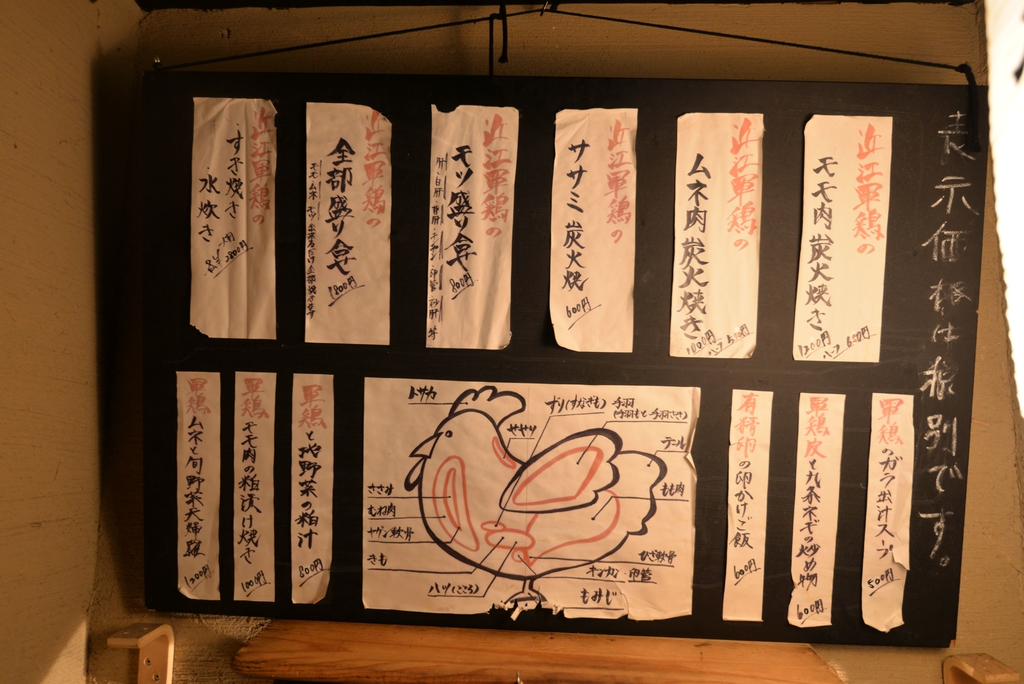 表示価格は税別です。
近江軍鶏の
モモ肉炭火焼き
1200円
ハーフ 600円
近江軍鶏の
ムネ肉炭火焼き
1000円
ハーフ 500円
近江軍鶏の
ササミ炭火焼
600円
近江軍鶏の
モツ盛り合せ
800円
近江軍鶏の
全部盛り合せ
1800円
近江軍鶏の
すき焼き
水炊き
軍鶏のガラ出汁スープ
500円
軍鶏皮と九条ネギの炒め物
600円
有精卵の卵かけご飯
600円
トサカ
ささみ
むね肉
ヤゲン軟骨
きも
ハツ(こころ)
ずり(すなぎも)
手羽
(手羽もと・手羽さき)
テール
もも肉
ひざ軟骨
もみじ
軍鶏と地野菜の粕汁
800円
軍鶏モモ肉の粕漬け焼き
1000円
軍鶏ムネと旬野菜天婦羅
1200円